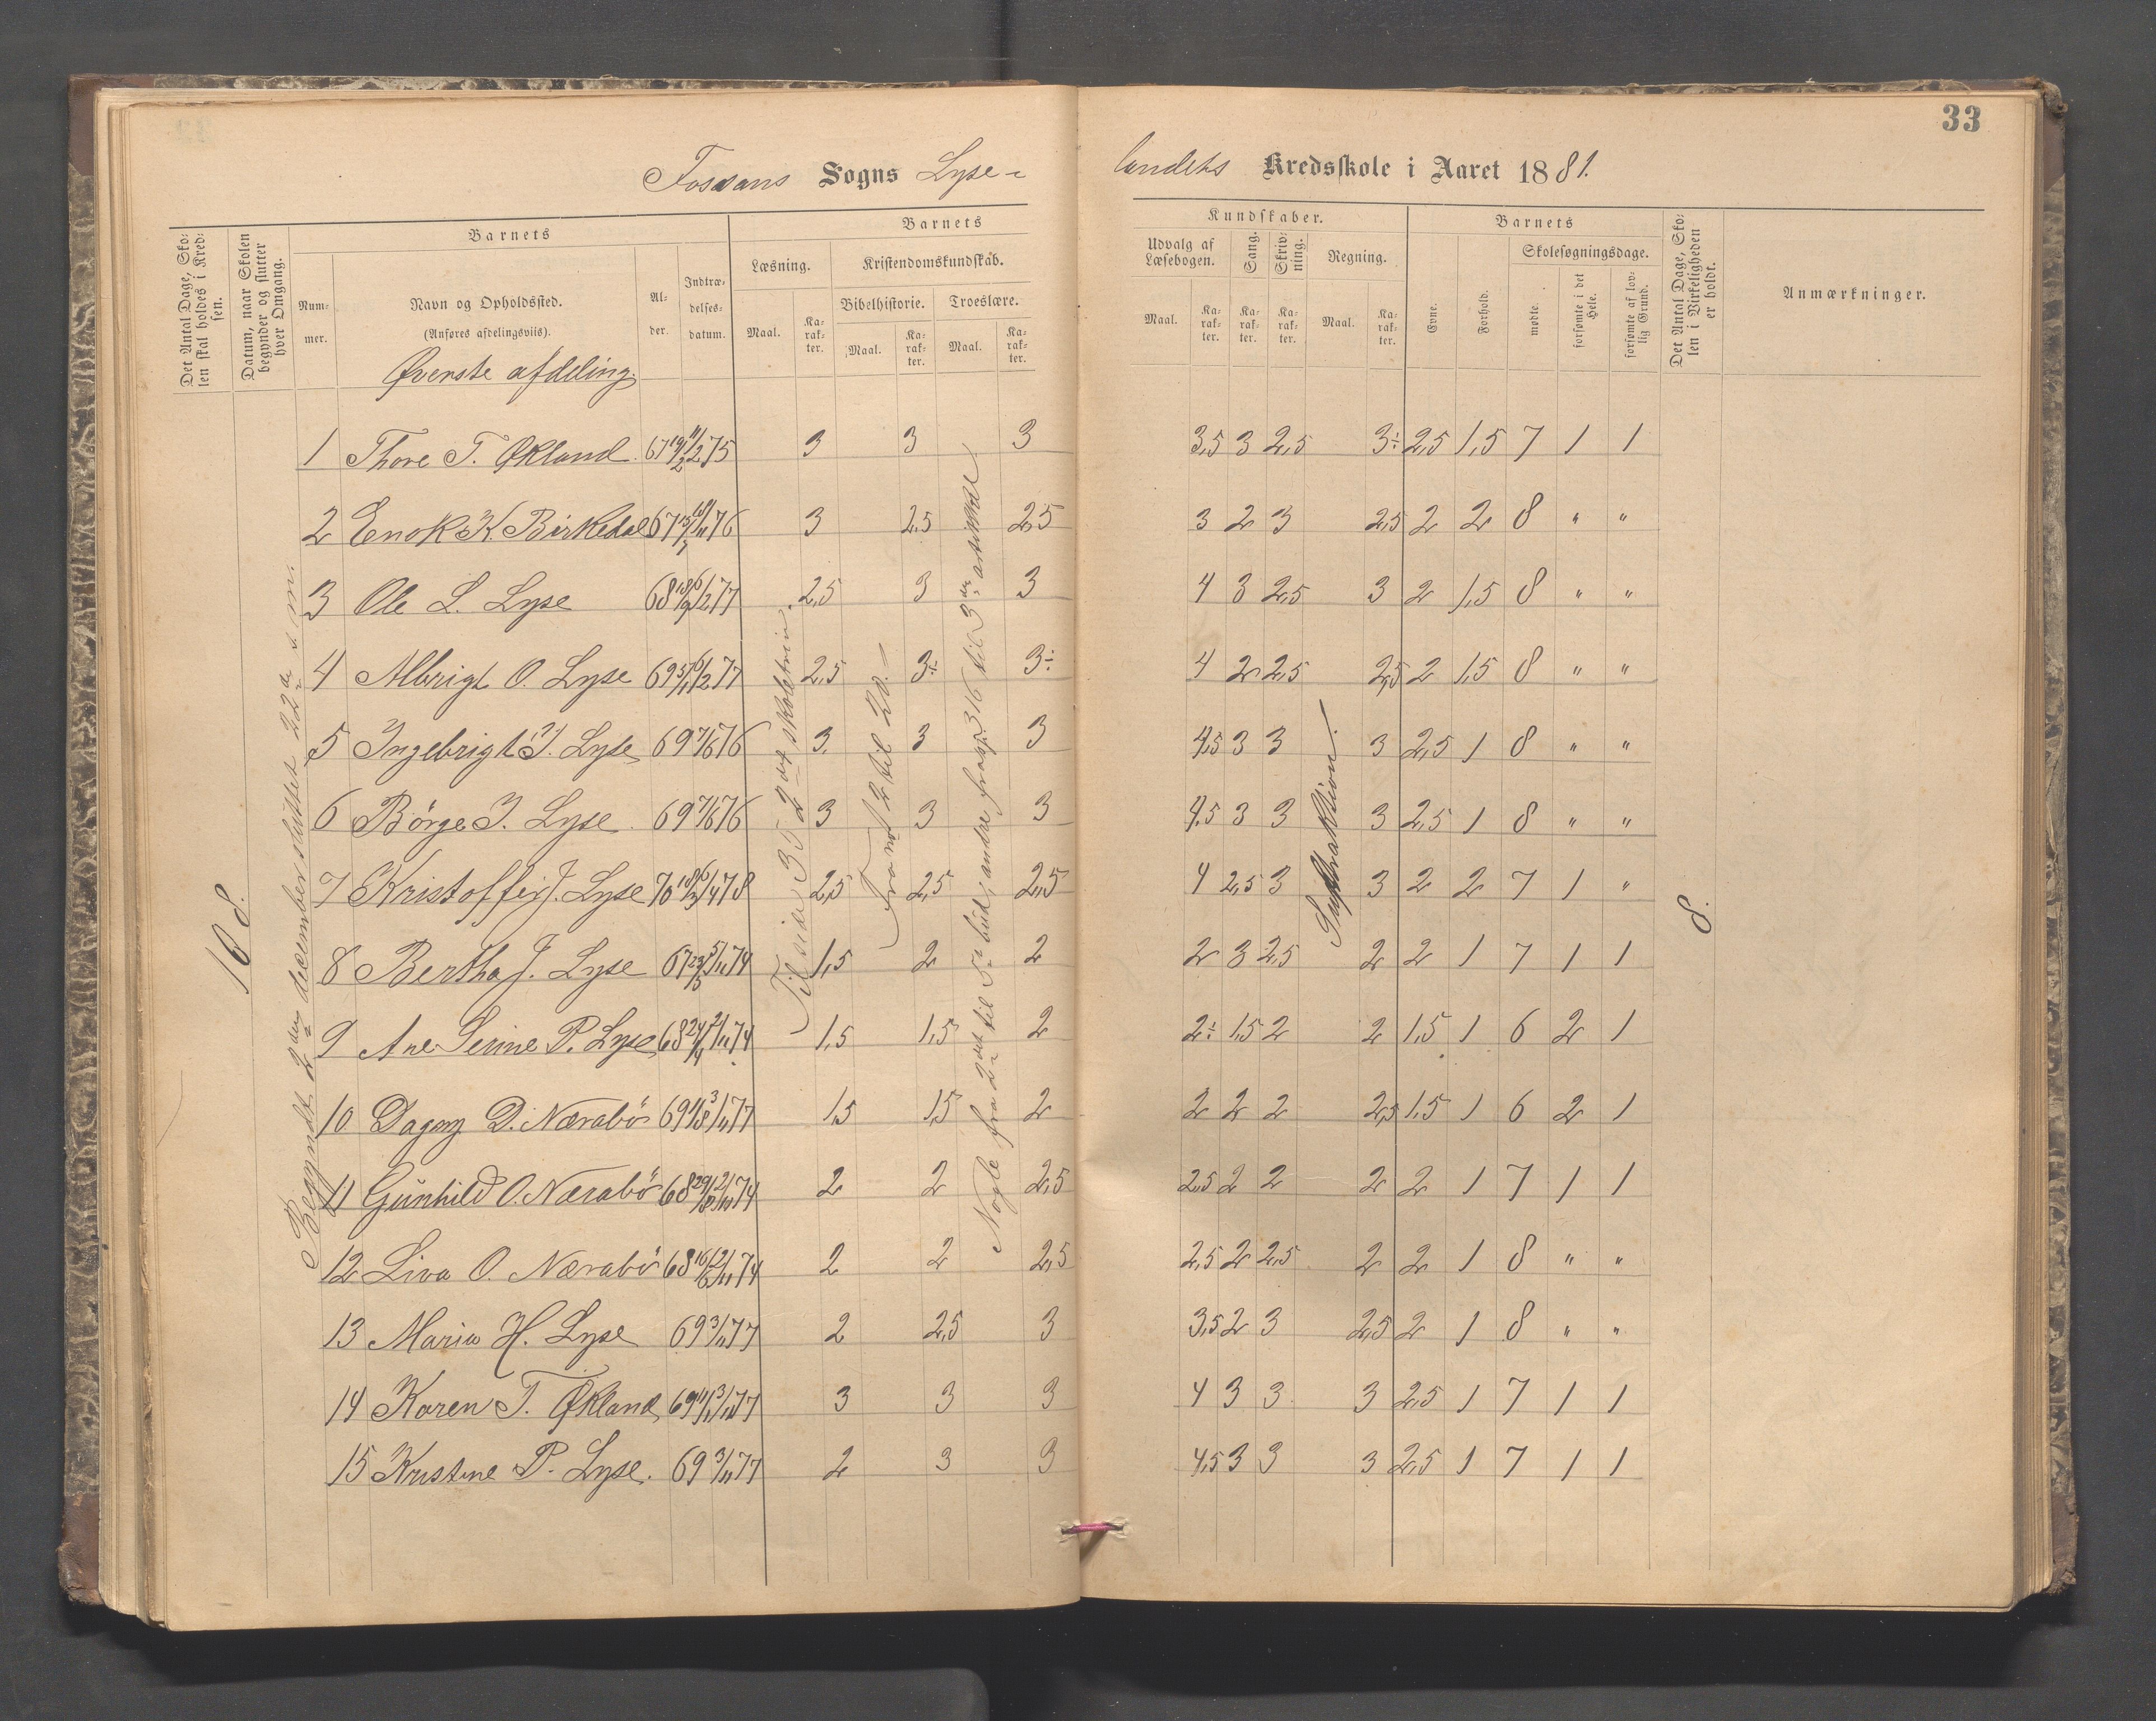 33
Fossans Sogns Lyse-
landets Kredsskole i Aaret 1881.
Det Antal Dage, Skolen skal holdes i Kredsen.
Datum, naar Skolen begynder og slutter hver Omgang.
Barnets
Nummer.
Navn og Opholdssted.
(Anføres afdelingsviis).
Alder.
Indtrædelsesdatum.
Barnets
Læsning.
Kristendomskundskab.
Bibelhistorie. Troeslære.
Maal. Karakter. Maal. Karakter. Maal. Karakter.
Kundskaber.
Udvalg af Læsebogen. Sang. Skrivning. Regning.
Maal. Karakter. Karakter. Karakter. Maal. Karakter.
Barnets
Evne. Forhold.
Skolesøgningsdage.
mødte. forsømte i det Hele. forsømte af lovlig Grund.
Det Antal Dage, Skolen i Virkeligheden er holdt.
Anmærkninger.
Øverste afdeling.
1 Thore T. Økland 67 75 3 3 3 3,5 3 2,5 3÷ 2,5 1,5 7 1 1
2 Enok K. Birkedal 67 76 3 2,5 2,5 3 2 3 2,5 2 2 8 " "
3 Ole L. Lyse 68 77 2,5 3 3 4 3 2,5 3 2 1,5 8 " "
4 Albrigt O. Lyse 69 77 2,5 3÷ 3÷ 4 2 2,5 2,5 2 1,5 8 " "
5 Ingebrigt I. Lyse 69 76 3 3 3 4,5 3 3 3 2,5 1 8 " "
6 Börge I. Lyse 69 76 3 3 3 4,5 3 3 3 2,5 1 8 " "
7 Kristoffer J. Lyse 70 78 2,5 2,5 2,5 4 2,5 3 3 2 2 7 1 "
8 Bertha J. Lyse 67 74 1,5 2 2 2 3 2,5 2 2 1 7 1 1
9 Ane Serine P. Lyse 68 74 1,5 1,5 2 2÷ 1,5 2 2 1,5 1 6 2 1
10 Dagny D. Nærabö 69 77 1,5 1,5 2 2 2 2 2,5 1,5 1 6 2 1
11 Gunhild O. Nærabö 68 74 2 2 2,5 2,5 2 2 2 2 1 7 1 1
12 Liva O. Nærabö 68 74 2 2 2,5 2,5 2 2,5 2 2 1 8 " "
13 Maria H. Lyse 69 3/11 77 2 2,5 3 3,5 2 3 2,5 2 1 8 " "
14 Karen T. Økland 69 77 3 3 3 4 3 3 3 2,5 1 7 1 1
15 Kristine P. Lyse. 69 3/11 77 2 3 3 4,5 3 3 3 2,5 1 7 1 1
Begyndt 2den december sluttet 22de s. m.
Til side 35 2det skoletrin.
Fra no 2 til 20.
Nogle fra 2det til 5te bud, andre fra til 3die artikkel.
Subtraktion.
8.